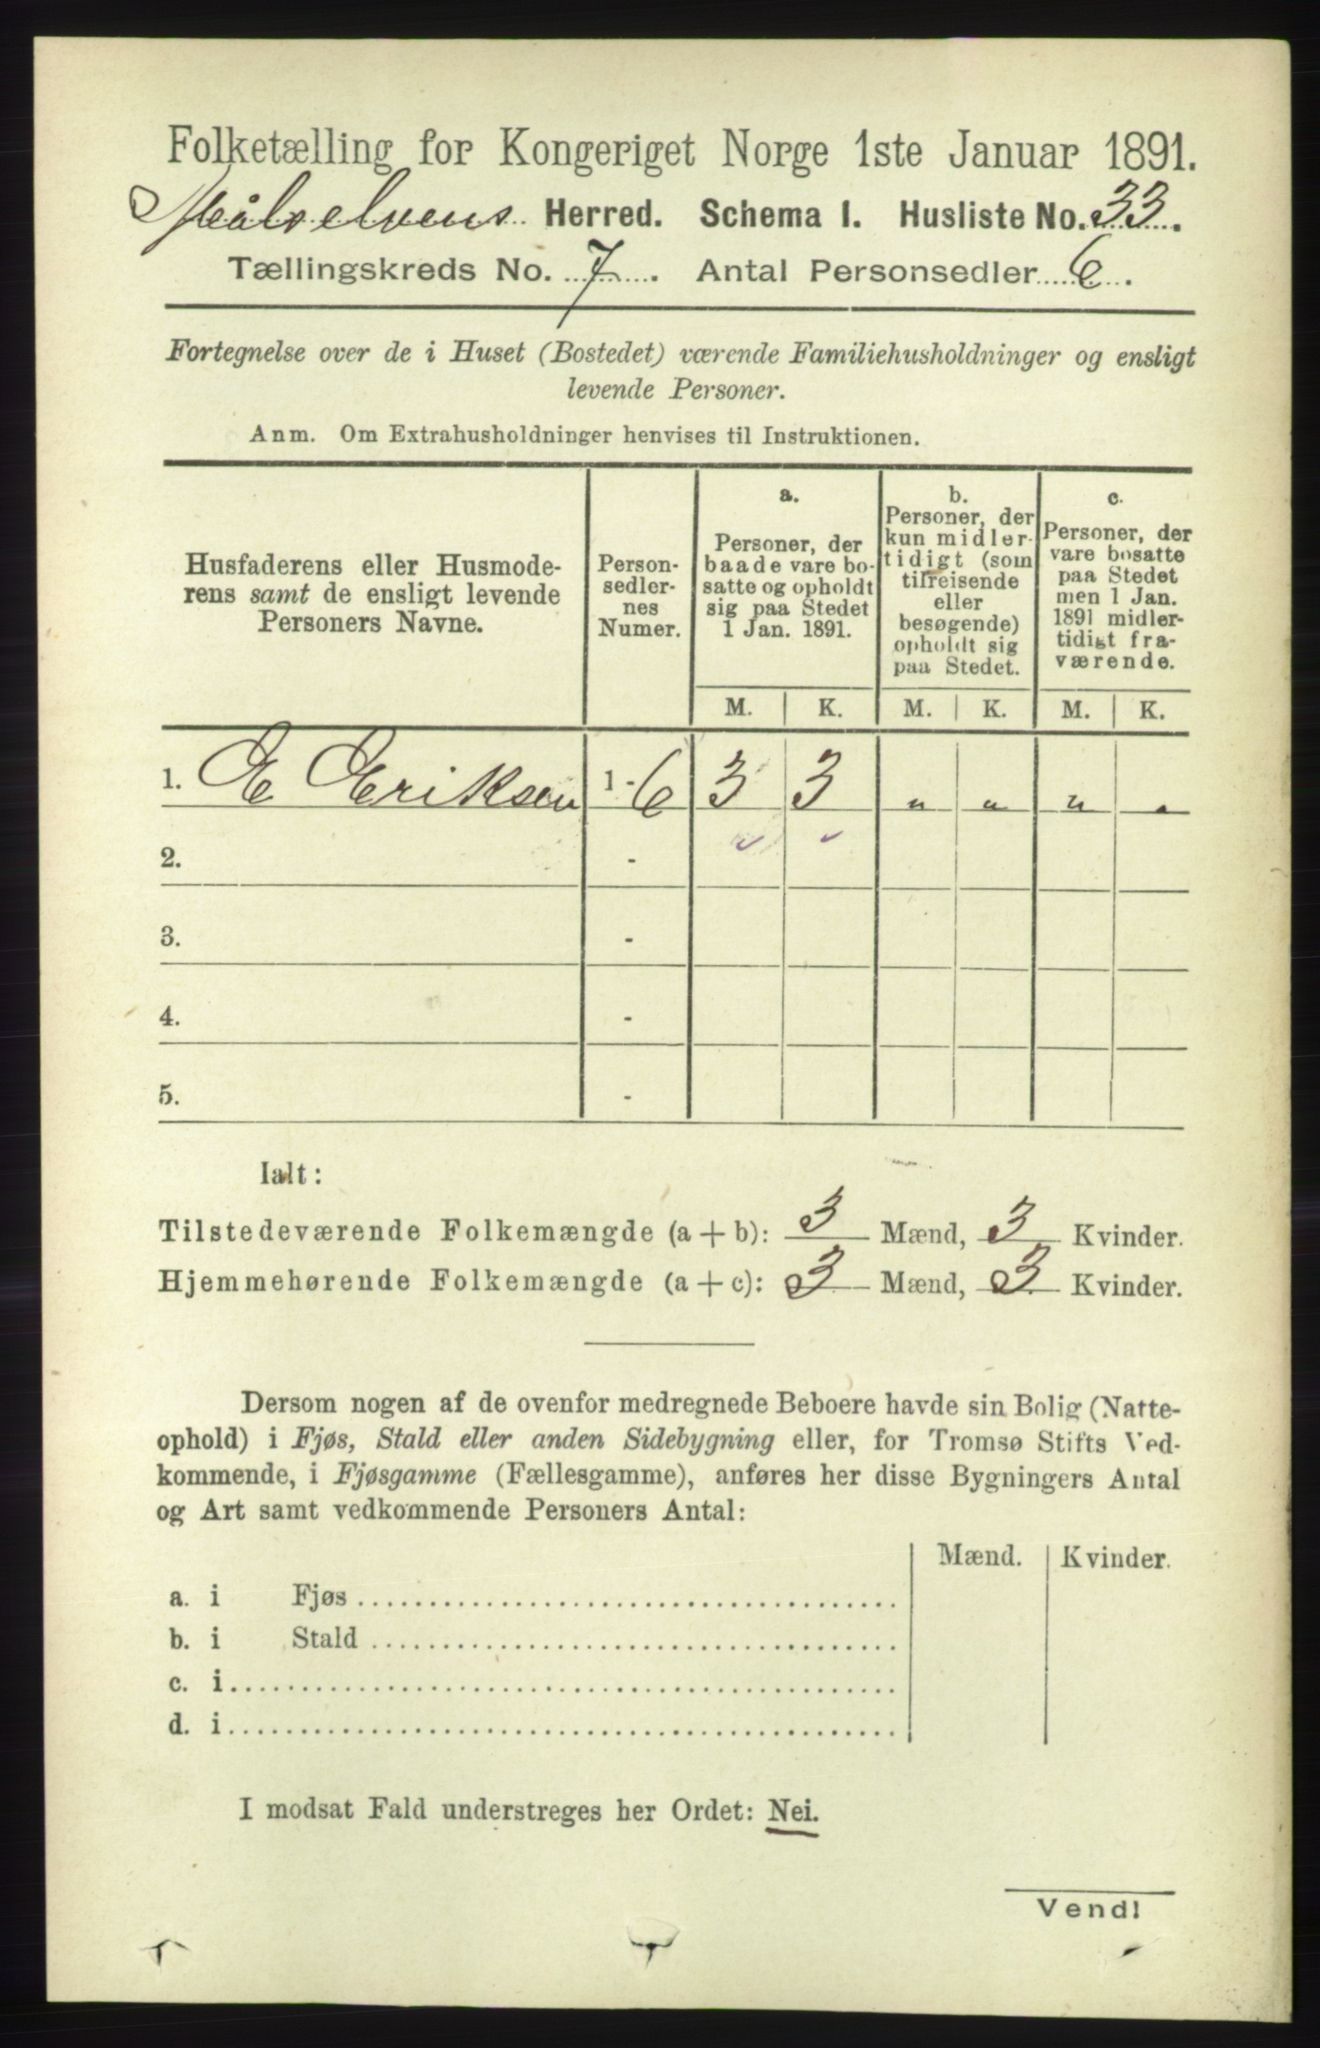 Folketælling for Kongeriget Norge 1ste Januar 1891.
Målselvens Herred. Schema I. Husliste No. 33.
Tællingskreds No. 7. Antal Personsedler 6.
Fortegnelse over de i Huset (Bostedet) værende Familiehusholdninger og ensligt
levende Personer.
Anm. Om Extrahusholdninger henvises til Instruktionen.
Husfaderens eller Husmode-
rens samt de ensligt levende
Personers Navne.
Person-
sedler-
nes
Numer.
a.
Personer, der
baade vare bo-
satte og opholdt
sig paa Stedet
1 Jan. 1891.
b.
Personer, der
kun midler-
tidigt (som
tilreisende
eller
besøgende)
opholdt sig
paa Stedet.
c.
Personer, der
vare bosatte
paa Stedet
men 1 Jan.
1891 midler-
tidigt fra-
værende.
M. K. M. K. M. K.
1. E Eriksen 1 - 6 3 3 „ „ „ „
2. -
3. -
4. -
5. -
Ialt:
Tilstedeværende Folkemængde (a + b): 3 Mænd, 3 Kvinder.
Hjemmehørende Folkemængde (a + c): 3 Mænd, 3 Kvinder.
Dersom nogen af de ovenfor medregnede Beboere havde sin Bolig (Natte-
ophold) i Fjøs, Stald eller anden Sidebygning eller, for Tromsø Stifts Ved-
kommende, i Fjøsgamme (Fællesgamme), anføres her disse Bygningers Antal
og Art samt vedkommende Personers Antal:
Mænd. Kvinder.
a. i Fjøs
b. i Stald
c. i
d. i
I modsat Fald understreges her Ordet: Nei.
Vend!